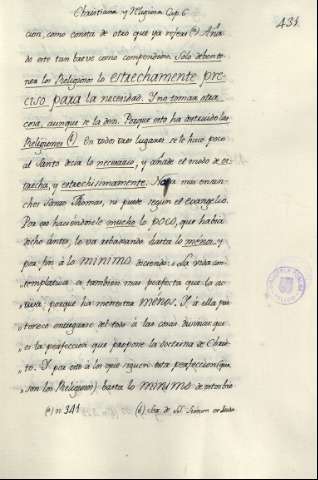 Christiana y Religiosa Cap. 6
431.
cion, como consta de otro que ya referi (a) Aña-
do esto tan breve como compendioso. Solo deben te-
ner los Religiosos lo estrechamente pre-
ciso para la necesidad. Y no toman otra
cosa, aunque se la den. Porque esto ha destruido las
Religiones (b). En todos tres lugares se le hizo poco
al Santo decir lo necesario, y añade el modo de es-
trecha, y estrechissimamente. mas ensan-
ches Santo Thomas, no puede segun el evangelio.
Por eso haciendosele mucho lo poco, que habia
dicho antes, lo va rebaxando hasta lo menos, y
por fin à lo minimo diciendo: La vida con-
templativa es tambien mas perfecta que la ac-
tiva; porque ha menester menos. Y à ella per-
tenece entregarse del todo à las cosas divinas, que
es la perfeccion que propone la doctrina de Chris-
to. Y por esto à los que siguen esta perfeccion (que
son los Religiosos) basta lo minimo de
(a) n. 341
(b)